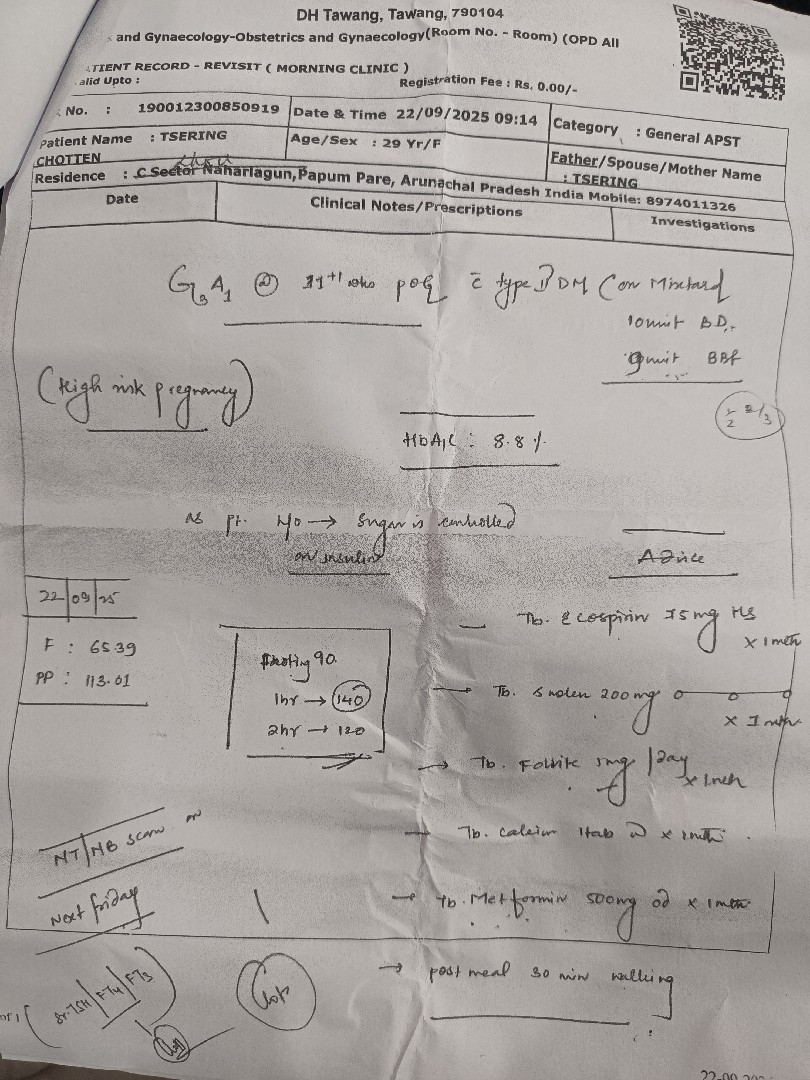 DH Tawang, Tawang, 790104
and Gynaecology-Obstetrics and Gynaecology(Room No. - Room) (OPD All
ATIENT RECORD - REVISIT ( MORNING CLINIC )
alid Upto :
Registration Fee : Rs. 0.00/-
No. : 190012300850919
Date & Time 22/09/2025 09:14
Category : General APST
Patient Name : TSERING CHOTTEN
Age/Sex : 29 Yr/F
Father/Spouse/Mother Name : TSERING
Residence : C Sector Naharlagun,Papum Pare, Arunachal Pradesh India Mobile: 8974011326
Date
Clinical Notes/Prescriptions
Investigations
G3A1 @ 11+1 wks POG c̄ type II DM (on Mixtard
10 unit BD,
9 unit BBF
(High risk pregnancy)
HbA1C : 8.8 %
As pt. H/o → Sugar is controlled
on insulin
Advice
22/09/25
F : 65.39
PP : 113.01
Fasting 90
1hr → 140
2hr → 120
Tb. Ecosprin 75mg HS
x 1 mth
→ Tb. Susten 200mg
x 1 mth
→ Tb. Folvite 5mg /day
x 1 mth
Tb. Calcium 1tab x 1 mth
→ Tb. Metformin 500mg od x 1 mth
→ post meal 30 min walking
NT/NB scan on
Next friday
of 1
(Sr. TSH/FT4/FT3)